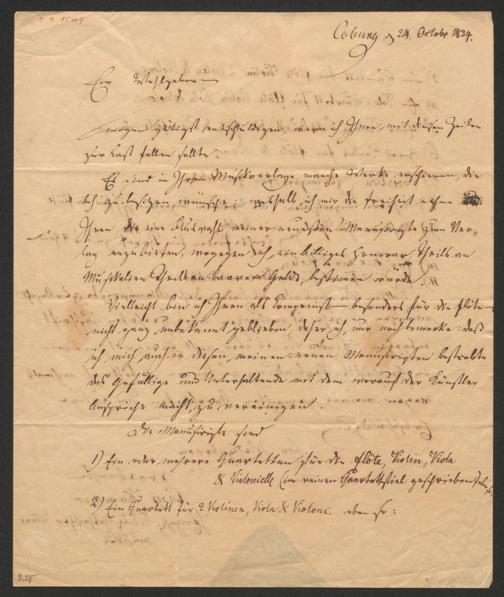 Coburg d 24. Octobr 1834.
Ew Wohlgeboren
mögen gütigst entschuldigen, wenn ich Ihnen mit diesen Zeilen
zur Last fallen sollte.
Es sind in Ihrem Musikverlage manche Werke erschienen, die
ich zu besitzen wünsche; weshalb ich mir die Freiheit nehme
Ihnen eine Auswahl meiner neuesten Manuscripte zum Ver-
lag anzubieten, wogegen ich ein billiges Honorar theils an
Musikalien theils an baarem Gelde, bestimmen würde.
Vielleicht bin ich Ihnen als Componist besonders für die Flöte
nicht ganz unbekannt geblieben, daher ich nur noch bemerke: daß
ich mich auch in diesen meinen neuen Manuscripten bestrebte
das Gefällige und Unterhaltende mit dem worauf der Künstler
Ansprüche macht, zu vereinigen.
Die Manuscripte sind
1) Ein oder mehrere Quartetten für die Flöte, Violin, Viola
& Violoncelle (im reinen Quartettstiel geschrieben)
2) Ein Quartett für 2 Violinen, Viola & Violonc. eben so: